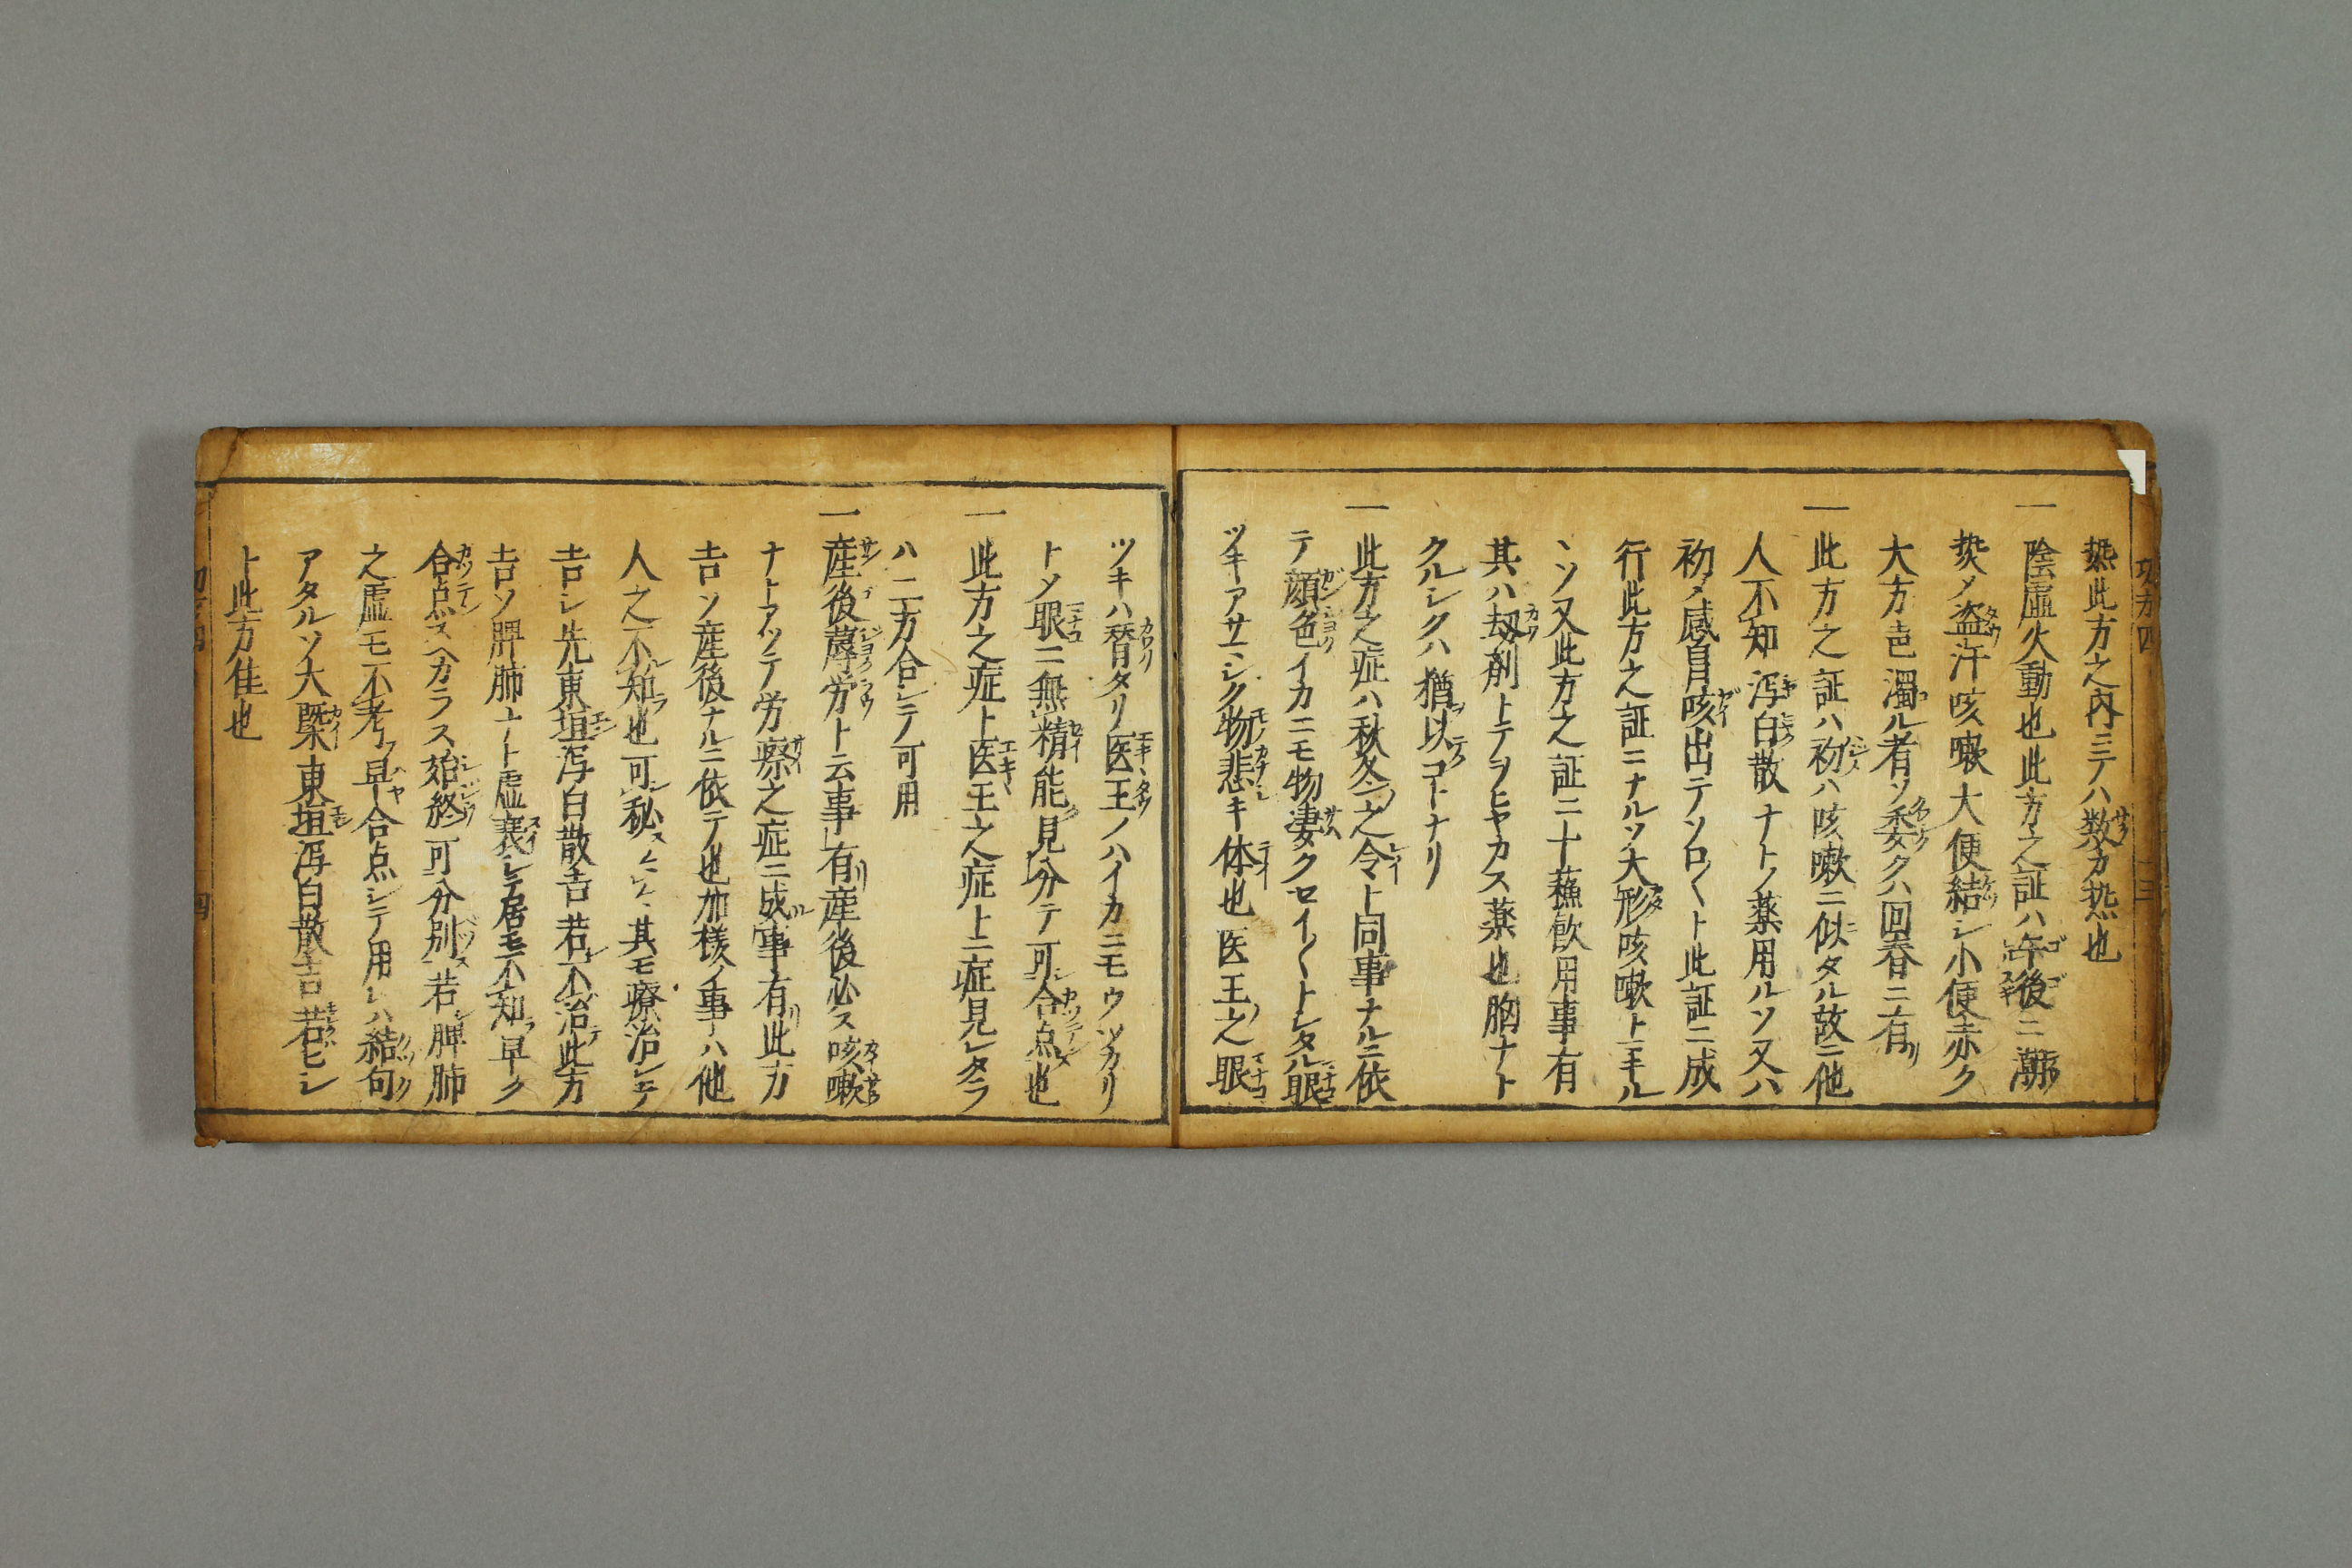 熱此方之内ニテハ数カ熱也
一陰虚火動也此方之証ハ午後ニ潮
熱メ盗汗咳嗽大便結シ小便赤ク
大方色濁ル者ソ委クハ回春ニ有
一此方之証ハ初ハ咳嗽ニ似タル故ニ他
人不知瀉白散ナトノ薬用ルソ又ハ
初メ感冒咳出テソロ〱ト此証ニ成
行此方之証ニナルソ大形咳嗽トキル
ヽソ又此方之証ニ十蘓飲用事有
其ハ劫剤トテヲヒヤカス薬也胸ナト
クルシクハ猶以コトナリ
一此方之症ハ秋冬之令ト同事ナルニ依
テ顔色イカニモ物凄クセイ〱トシタル眼
ツキアサマシク物悲キ体也医王之眼
ツキハ替タリ医王ノハイカニモウツカリ
トメ眼ニ無精能見分テ可合点也
一此方之症ト医王之症ト二症見レタラ
ハ二方合シテ可用
一産後蓐労ト云事有産後必ス咳嗽
ナトアツテ労瘵之症ニ成事有此方
吉ソ産後ナルニ依テ也加様ノ事ハ他
人之不知也可秘ス〻〻其モ療治シテ
吉シ先東垣瀉白散吉若不治此方
吉ソ脾肺ナト虚衰シテ居モ不知早ク
合点スヘカラス始終可分別若脾肺
之虚モ不考早合点シテ用レハ結句
アタルソ大槩東垣瀉白散吉若ヒシ
ト此方佳也